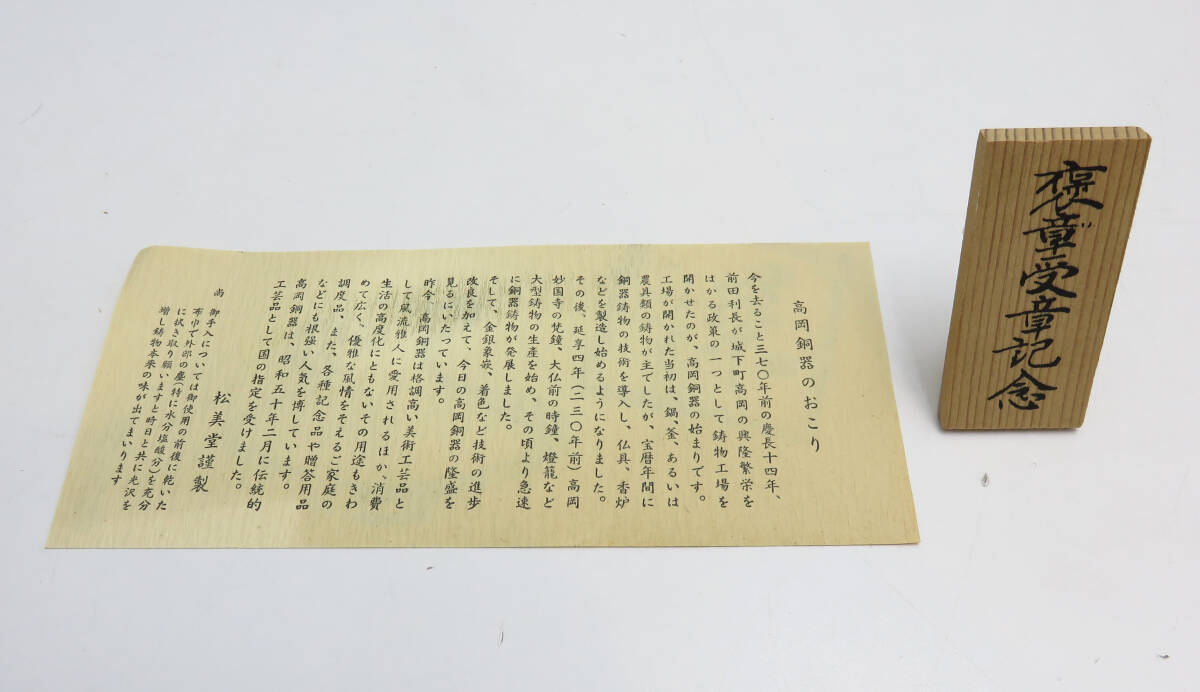 高岡銅器のおこり
今を去ること三七〇年前の慶長十四年、
前田利長が城下町高岡の興隆繁栄を
はかる政策の一つとして鋳物工場を
開かせたのが、高岡銅器の始まりです。
工場が開かれた当初は、鍋、釜、あるいは
農具類の鋳物が主でしたが、宝暦年間に
銅器鋳物の技術を導入し、仏具、香炉
などを製造し始めるようになりました。
その後、延享四年(二三〇年前)高岡
妙国寺の梵鐘、大仏前の時鐘、燈籠など
大型鋳物の生産を始め、その頃より急速
に銅器鋳物が発展しました。
そして、金銀象嵌、着色など技術の進歩
改良を加えて、今日の高岡銅器の隆盛を
見るにいたっています。
昨今、高岡銅器は格調高い美術工芸品と
して風流雅人に愛用されるほか、消費
生活の高度化にともないその用途もきわ
めて広く、優雅な風情をそえるご家庭の
調度品、また、各種記念品や贈答用品
などにも根強い人気を博しています。
高岡銅器は、昭和五十年二月に伝統的
工芸品として国の指定を受けました。
松美堂謹製
尚 御手入については御使用の前後に乾いた
布巾で外部の塵(特に水分塩酸分)を充分
に拭き取り願いますと時日と共に光沢を
増し鋳物本来の味が出てまいります
褒章受章記念